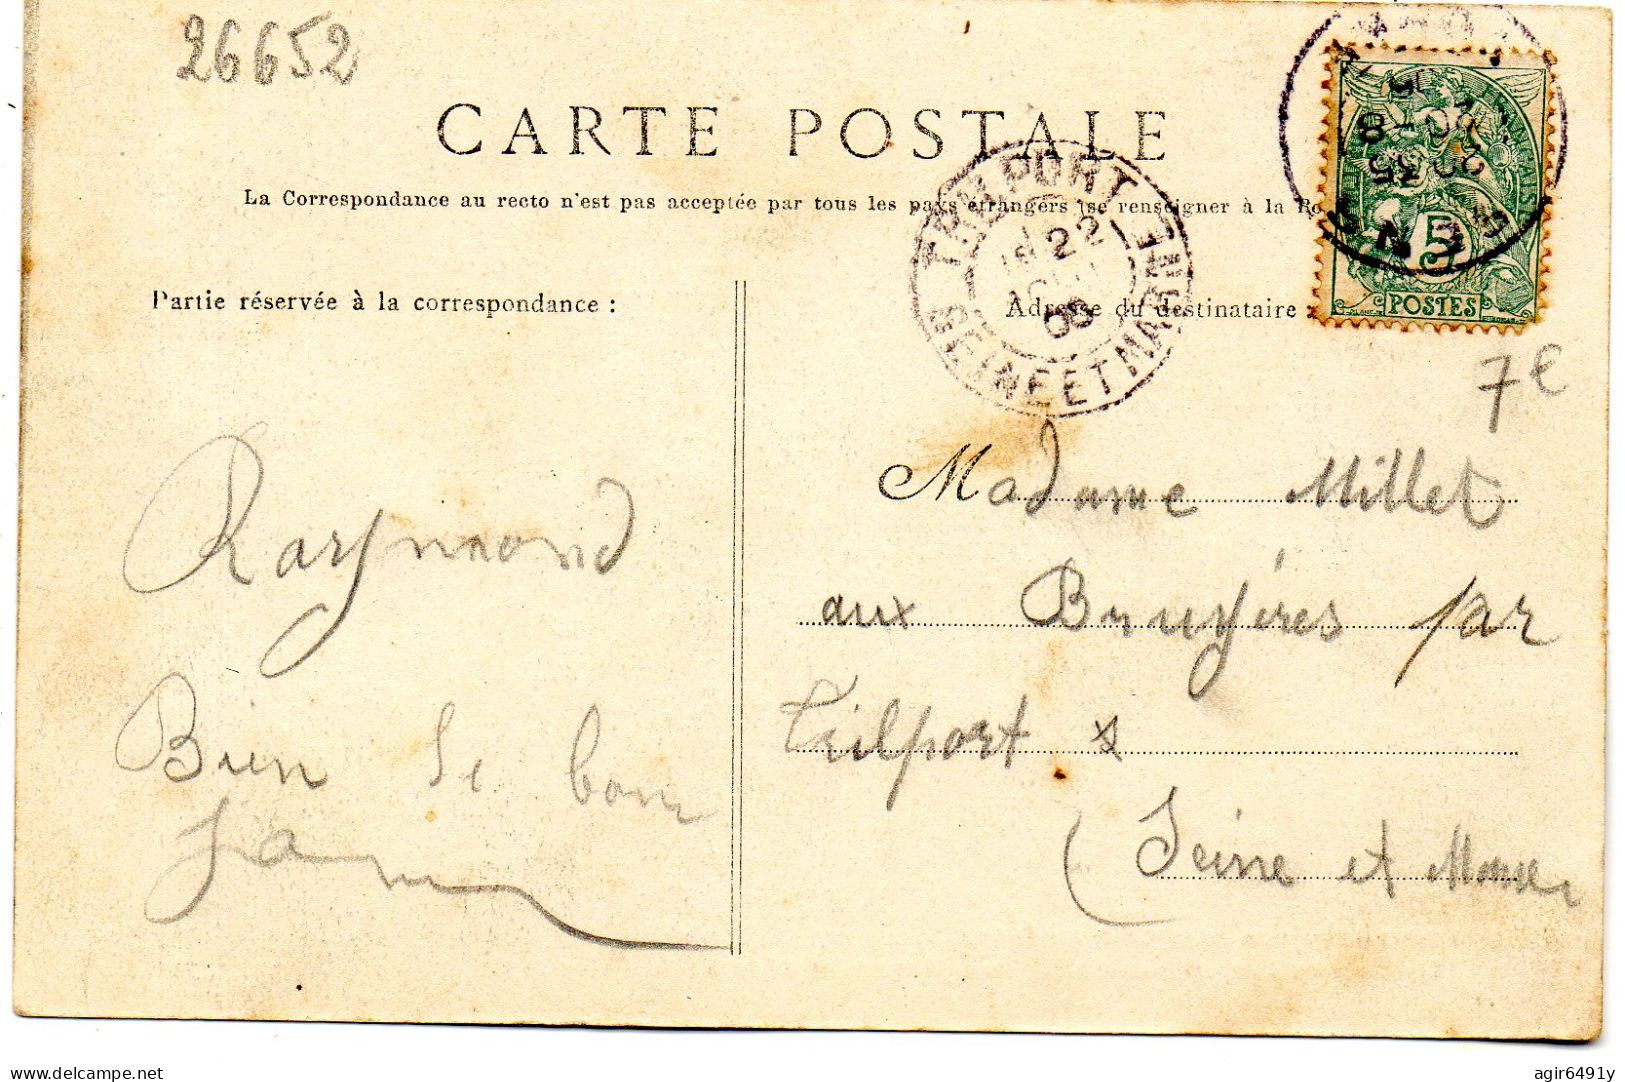 26652
CARTE POSTALE
La Correspondance au recto n'est pas acceptée par tous les pays étrangers (se renseigner à la
Partie réservée à la correspondance :
Adresse du destinataire :
TRILPORT
22
SEINE ET MARNE
5
POSTES
7€
Raymond
Bien le bon
Madame Millet
aux Bruyéres par
Trilport
(Seine et Marne
delcampe.net
agir6491y